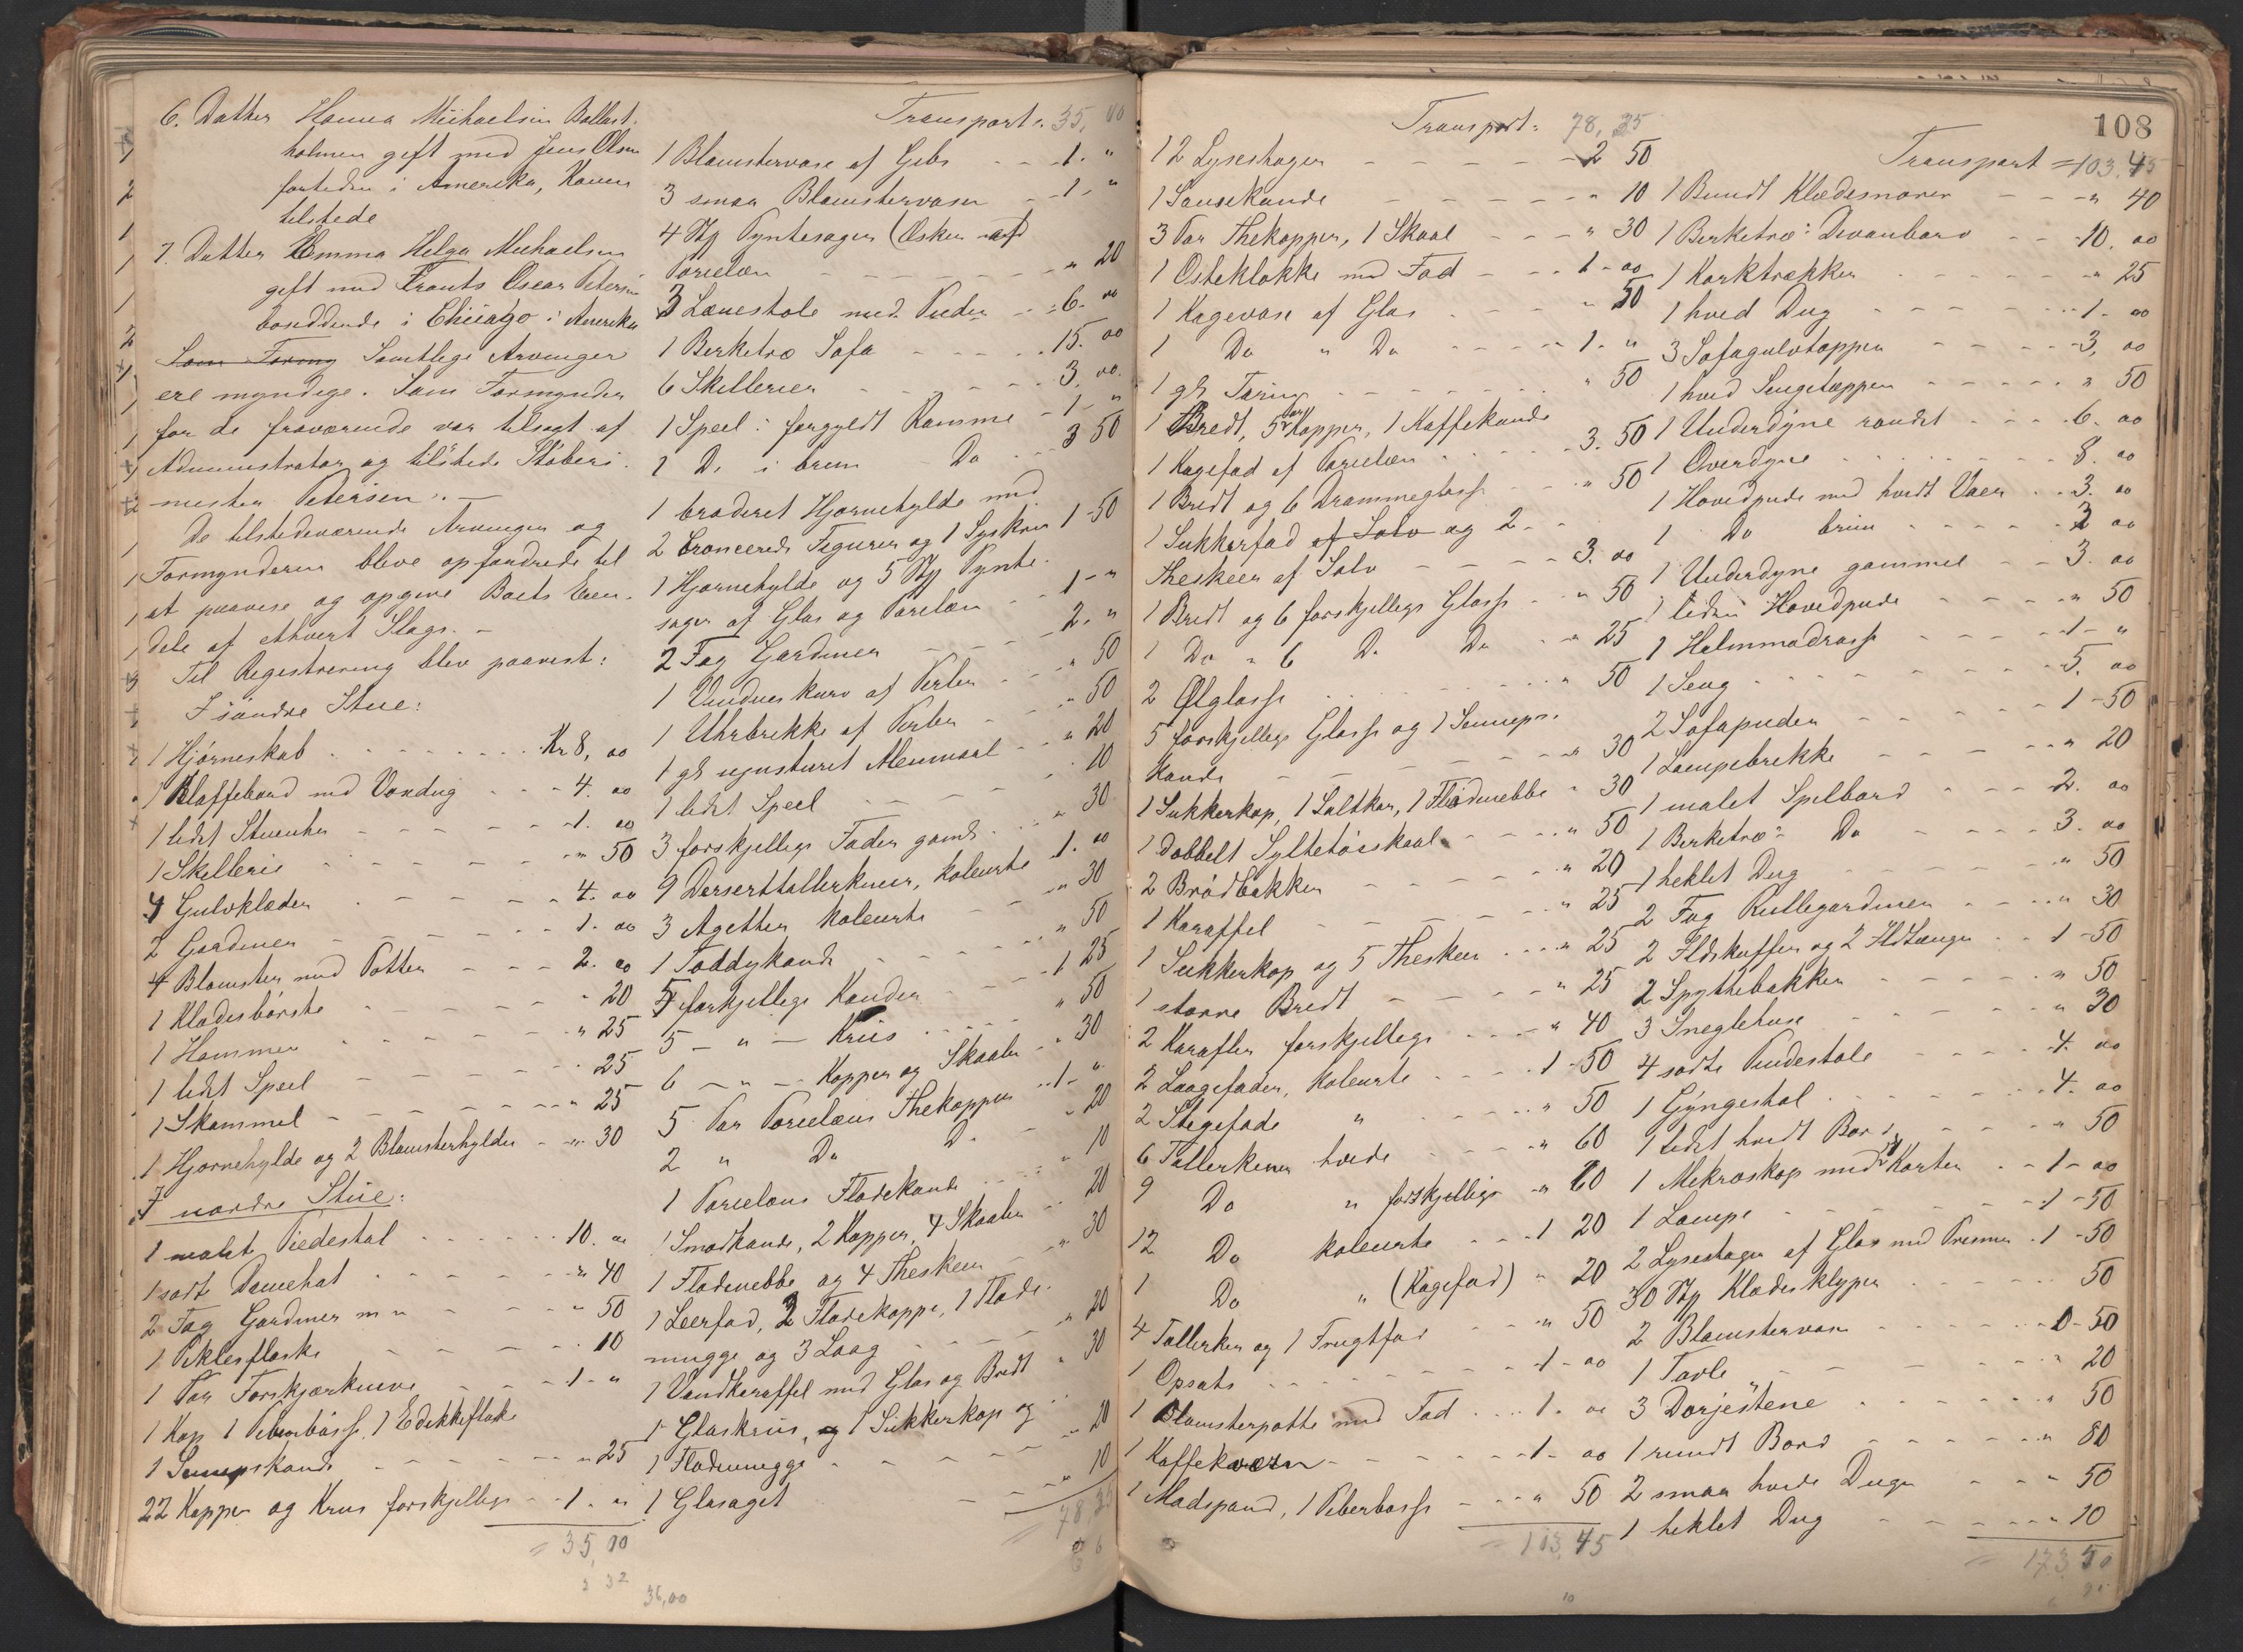 6. Datter Hanna Michaelsen Ballast-
holmen gift med Jens Olsen
fortiden i Amerika, Konen
tilstede
7. Datter Emma Helga Michaelsen
gift med Frants Oscar Petersen
bosiddende i Chicago i Amerika
Som Formy Samtlige Arvinger
ere myndige. Som Formynder
for de fraværende var tilsagt af
Administrator og tilstede Støberi-
mester Petersen. —
De tilstedeværende Arvinger og
Formynderen bleve opfordrede til
at paavise og opgive Boets Eien-
dele af ethvert Slags. —
Til Registrering blev paavist:
I søndre Stue:
1 Hjørneskab Kr 8, 00
1 Klaffebord med Voxdug 4. 00
1 lidet Stueuhr 1. 00
1 Skillerie " 50
4 Gulvklæder 4. 00
2 Gardiner 1. 00
4 Blomster med Potter 2. 00
1 Klædesbørste " 20
1 Hammer " 25
1 lidet Speil 25
1 Skammel " 25
1 Hjørnehylde og 2 Blomsterhylder " 30
I nordre Stue:
1 malet Piedestal 10. 00
1 sort Damehat " 40
2 Fag Gardiner m n " 50
1 Piklesflaske 10
1 Par Forskjærknive 1 - "
1 Kop 1 Peberbøsse, 1 Edikkeflaske
1 Senepskande " 25
22 Kopper og Krus forskjellige 1. "
= 35,00
36,00
Transport: 35,00
1 Blomstervase af Gibs 1. "
3 smaa Blomstervaser 1 - "
4 Stk Pyntesager (Æsker af
Porcelæn " 20
3 Lænestole med Puder 6. 00
1 Berketræ Sofa 15. 00
6 Skillerier 3. 00
1 Speil i forgyldt Ramme 1 - "
1 Do i brun Do 3 50
1 broderet Hjørnehylde med
2 bronserede Figurer og 1 Syskrin 1-50
1 Hjørnehylde og 5 Stk Pynte-
sager af Glas og Porcelæn 1 - "
2 Fag Gardiner 2. "
1 Vindueskurv af Perler " 50
1 Uhrbrikke af Perler " 50
1 gl ujusteret Alenmaal " 20
1 lidet Speil 10
3 forskjellige Fader gamle " 30
9 Dessertallerkener, koleurte 1. 00
3 Asjetter koleurte " 30
1 Toddykande " 50
5 forskjellige Kander 1 25
5 — " — Kruis " 50
6 — " — Kopper og Skaaler " 30
5 Par Porcelæns Thekopper 1 - "
2 " Do D. " 20
1 Porcelæns Flødekande " 10
1 Smørkande, 2 Kopper, 4 Skaaler 20
1 Flødenebbe og 4 Theskeer " 30
1 Leerfad, 2 Flødekoppe, 1 Fløde-
mugge og 3 Laag " 20
1 Vandkaraffel med Glas og Bret " 30
1 Glaskrus, og 1 Sukkerkop og
1 Flødemugge " 20
1 Glasaget " 10
= 78,35
Transport: 78,35
12 Lysestager 2 50
1 Sausekande " 10
3 Par Thekopper, 1 Skaal " 30
1 Osteklokke med Fad 1 - 00
1 Kagevase af Glas " 50
1 Do " Do 1. "
1 gl Tarin " 50
1 Bredt, 5 Par Kopper, 1 Kaffekande
1 Kagefad af Porcelæn 3. 50
1 Bredt og 6 Drammeglasse " 50
1 Sukkerfad af Sølv og 2
Theskeer af Sølv 3. 00
1 Bredt og 6 forskjellige Glasse " 50
1 Do " 6 D. Do " 25
2 Ølglasse " 50
5 forskjellige Glasse og 1 Seneps-
kande " 30
1 Sukkerkop, 1 Saltkar, 1 Flødenebbe " 30
1 dobbelt Syltetøisskaal " 50
2 Brødbakker " 20
1 Karaffel " 25
1 Sukkerkop og 5 Theskeer " 25
1 større Bredt " 25
2 Karafler forskjellige " 40
2 Laagefader, koleurte 1 - 50
2 Stegefade " " 50
6 Tallerkener hvide " 60
9 Do " forskjellige " 60
12 Do koleurte 1 20
1 Do " (Kagefad) " 20
4 Tallerker og 1 Frugtfad " 50
1 Opsats 1 - 00
1 Blomsterpotte med Fad 1. 00
1 Kaffekværn 1 - 00
1 Madspand, 1 Peberbøsse " 50
= 103,45
108
Transport = 103.45
1 Bundt Klædesnorer " 40
1 Berketræ: Divanbord 10. 00
1 Korktrækker " 25
1 hvid Dug 1. 00
3 Sofagulvtæpper 3, 00
1 hvid Sengetæppen " 50
1 Underdyne randet 6. 00
1 Overdyne 8. 00
1 Hovedpude med hvidt Vaer 3. 00
1 Do brun 2 00
1 Underdyne gammel 3. 00
1 liden Hovedpude " 50
1 Halmmadrass 1 - "
1 Seng 5. 00
2 Sofapuder 1 - 50
1 Lampebrikke " 20
1 malet Spilbord 2. 00
1 Berketræ: Do 3. 00
1 heklet Dug " 50
2 Fag Rullegardiner " 30
2 Ildskuffer og 2 Ildtænger 1 - 50
2 Spyttebakker " 50
3 Sneglehuse " 30
4 sorte Pindestole 4. 00
1 Gyngestol 4. 00
1 lidet hvidt Bord " 50
1 Mikroskop med 12 Korter 1 - 00
1 Lampe 1 - 50
2 Lysestager af Glas med Prismer 1 - 50
30 Stk Klædesklyper 50
2 Blomstervaser 0 - 50
1 Tavle " 20
3 Dorjestene " 50
1 rundt Bord " 80
2 smaa hvide Duge " 50
1 heklet Dug " 10
= 173 50